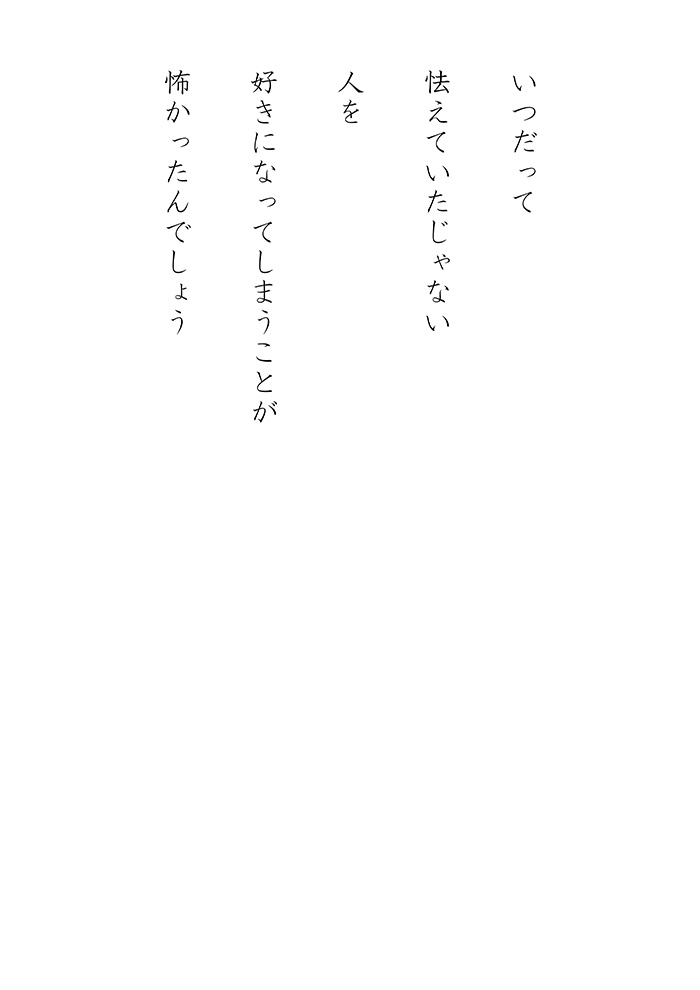 いつだって
怯えていたじゃない
人を
好きになってしまうことが
怖かったんでしょう